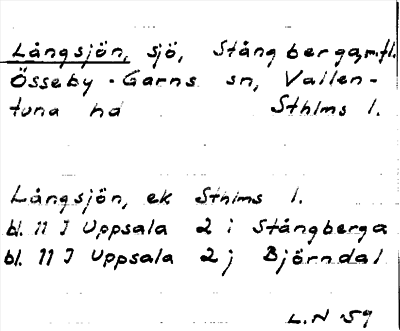 Långsjön, sjö, Stångberga m.fl.
Össeby-Garns sn, Vallen-
tuna hd Sthlms l.
Långsjön, ek Sthlms l.
bl. 11 I Uppsala 2 i Stångberga
bl. 11 I Uppsala 2 j Björndal
L.N 59